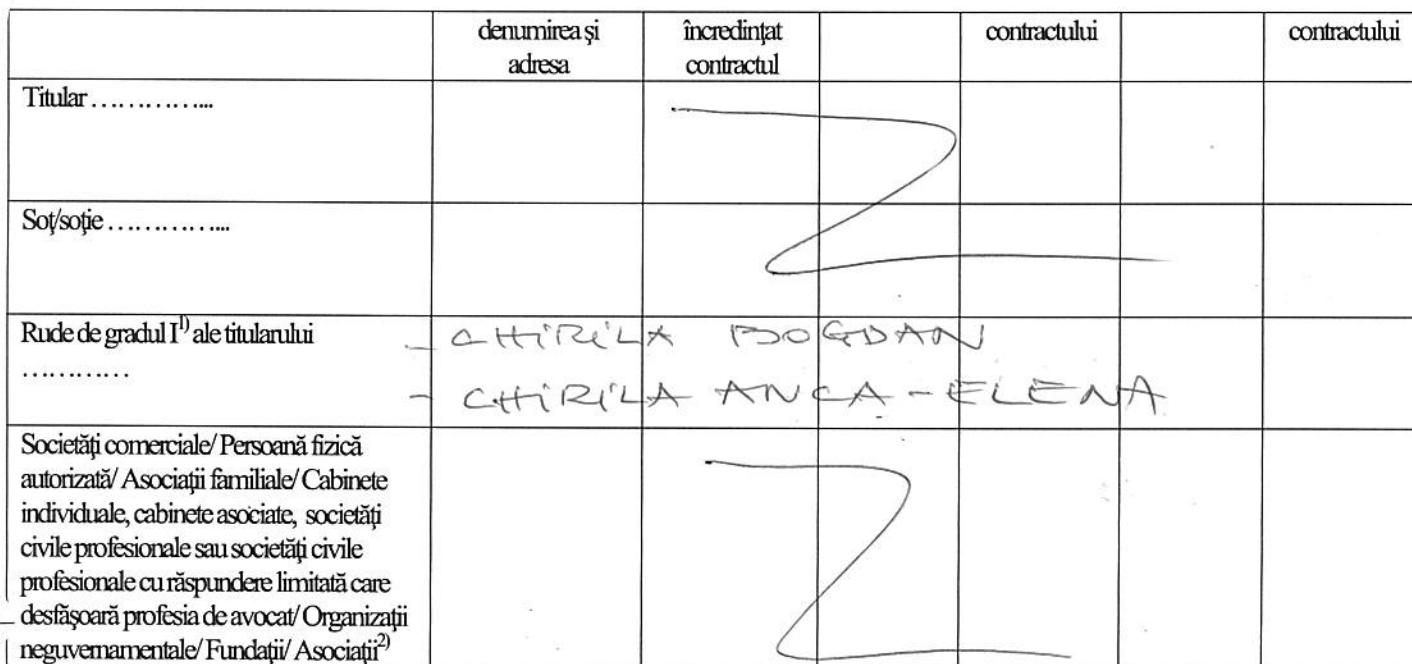 denumirea şi încredinţat contractului contractului
adresa contractul
Titular …………...
Soţ/soţie …………...
Rude de gradul I1) ale titularului - CHIRILA BOGDAN
………… - CHIRILA ANCA-ELENA
Societăţi comerciale/ Persoană fizică
autorizată/ Asociaţii familiale/ Cabinete
individuale, cabinete asociate, societăţi
civile profesionale sau societăţi civile
profesionale cu răspundere limitată care
desfăşoară profesia de avocat/ Organizaţii
neguvernamentale/ Fundaţii/ Asociaţii2)